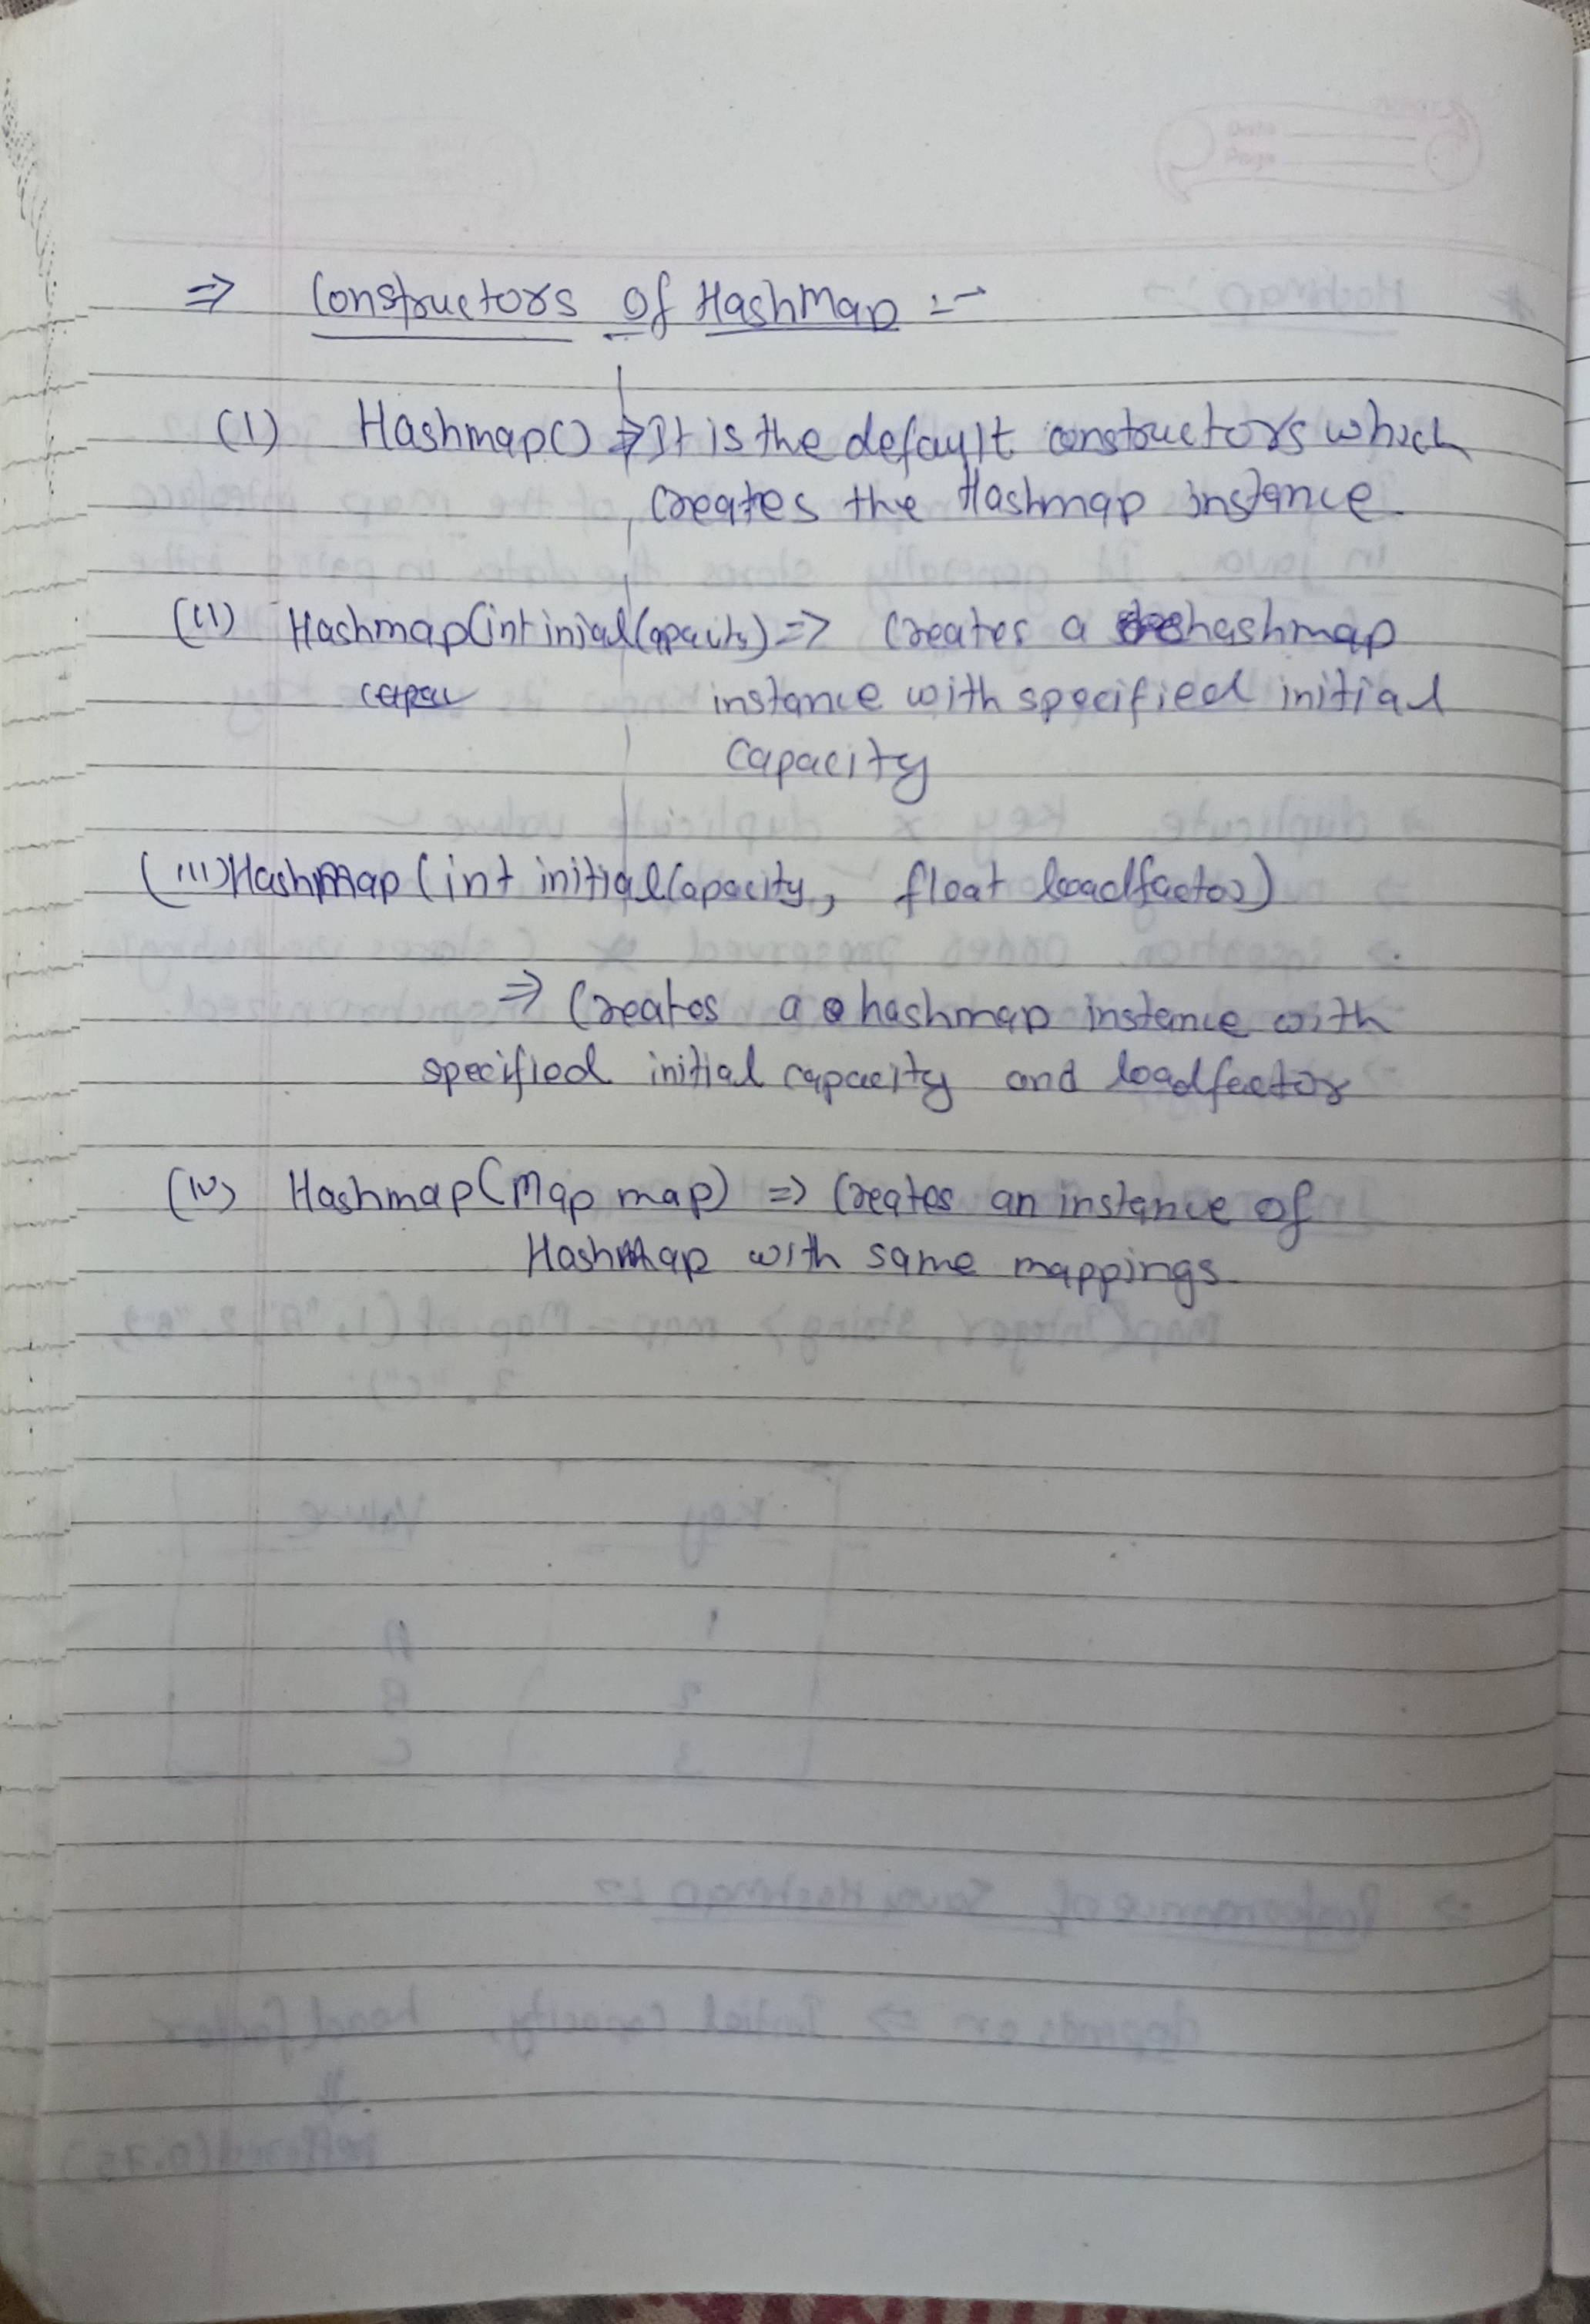 ⇒ Constructors Of HashMap :-
(I) Hashmap() ⇒ It is the default constructors which
creates the Hashmap instance
(II) Hashmap(int inialCapacity) ⇒ Creates a hashmap
capac instance with specified initial
Capacity
(III) HashMap (int initialCapacity, float loadfactor)
⇒ Creates a hashmap instance with
specified initial capacity and loadfactor
(IV) Hashmap(Map map) ⇒ Creates an instance of
HashMap with same mappings